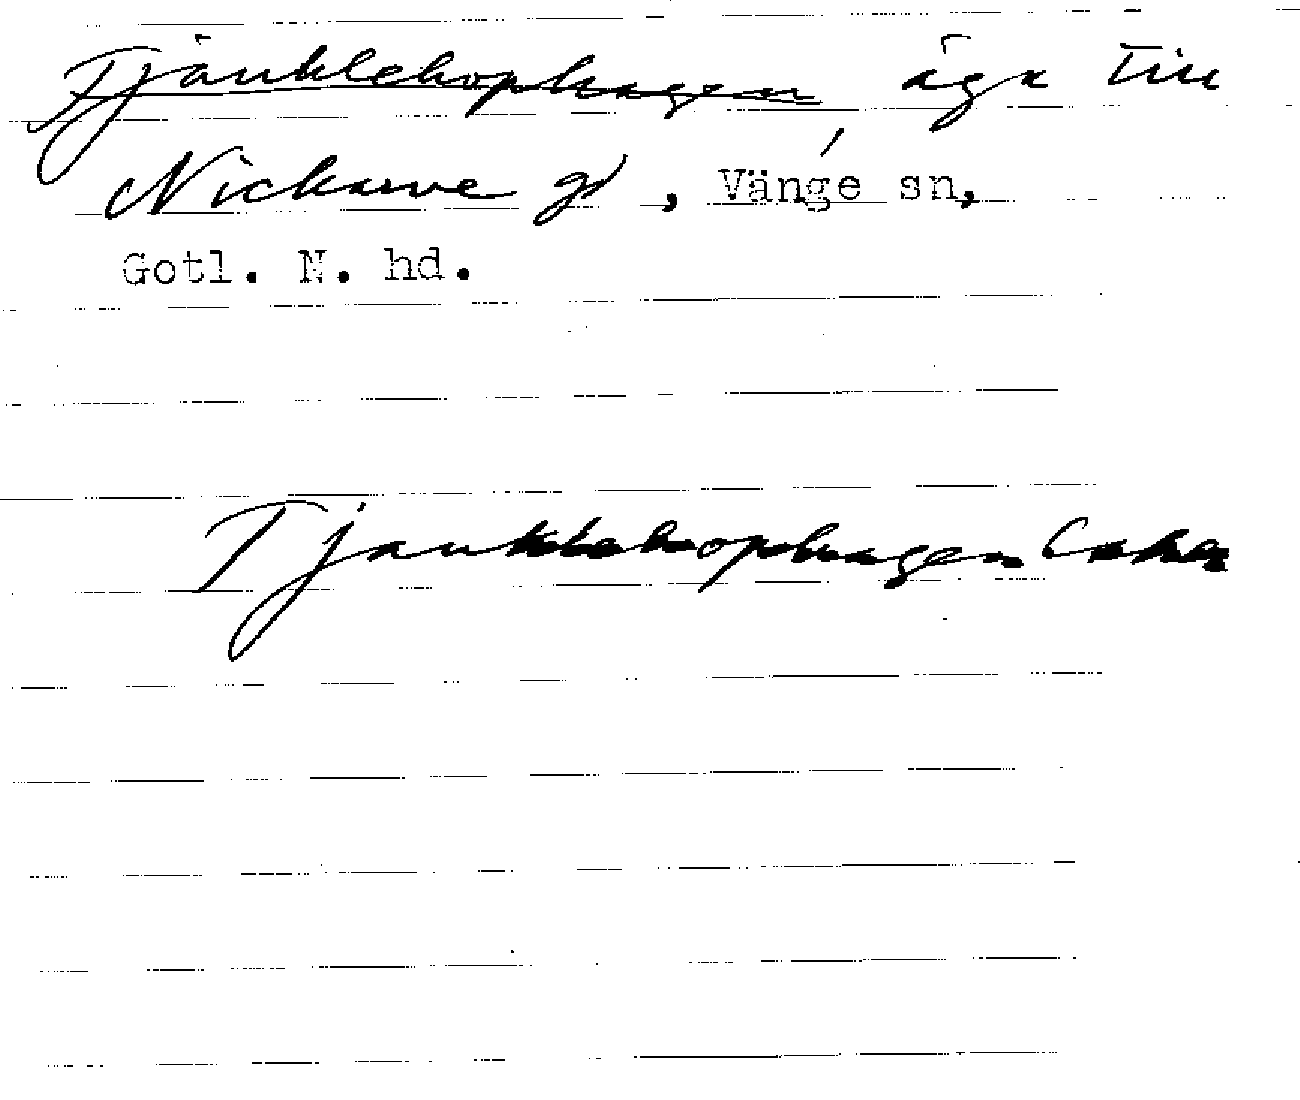 Tjäuklehophagen äga till
Nickarve gd, Vänge sn,
Gotl. N. hd.
Tjauklehophagen